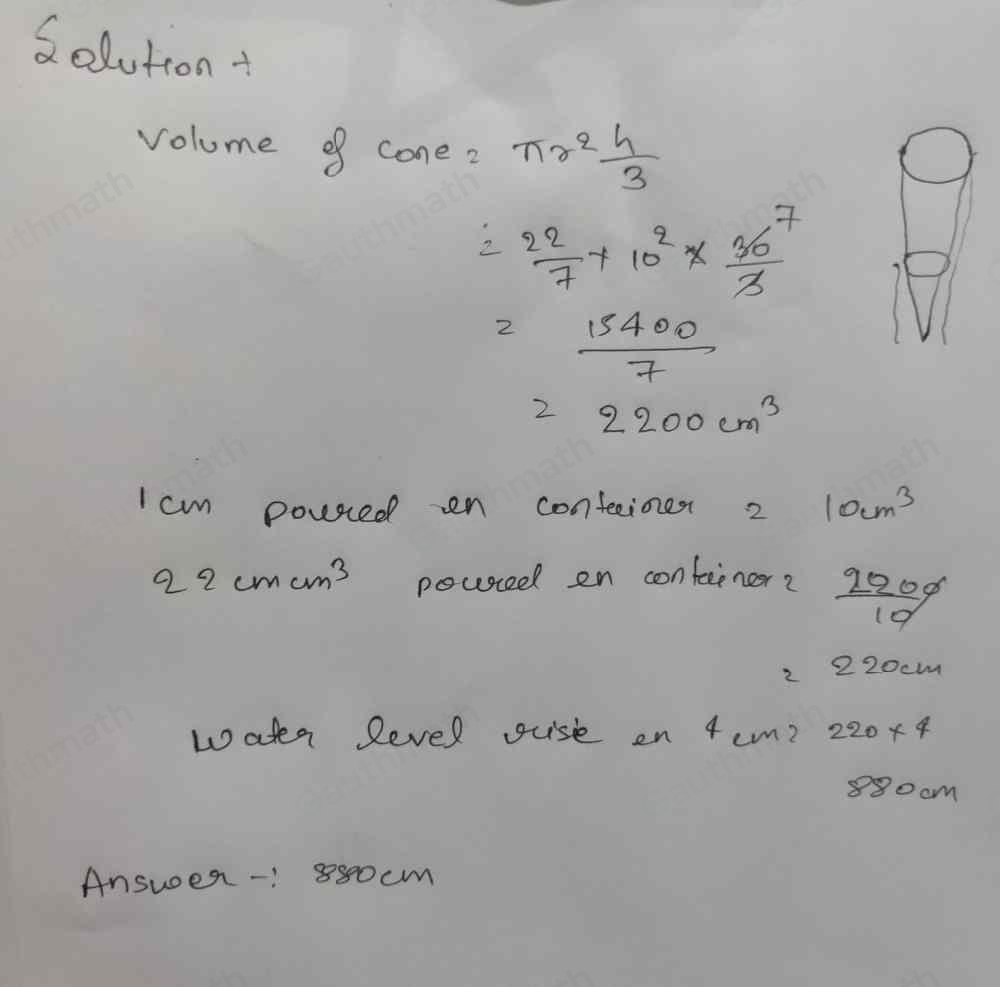 Solution +
Volume of cone = πr² h/3
= 22/7 + 10² × 36/3 7
= 15400/7
= 2200 cm³
1 cm poured en container = 10cm³
22 cm cm³ poured en container = 2200/10
= 220cm
Water level rise en 4 cm = 220 × 4
880cm
Answer -: 880cm